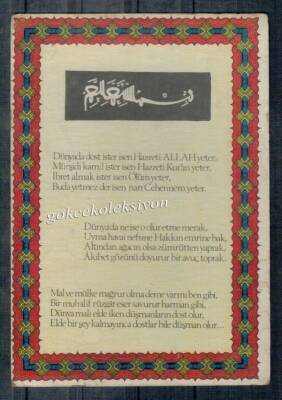 Dünyada dost ister isen Hazreti ALLAH yeter,
Mürşidi kamil ister isen Hazreti Kur'an yeter,
İbret almak ister isen Ölüm yeter,
Buda yetmez der isen nan Cehennem yeter.
gokcekoleksiyon
Dünyada ne ise o olur etme merak,
Uyma havai nefsine Hakkın emrine bak,
Altından ağacın olsa zümrütten yaprak,
Akıbet gözünü doyurur bir avuç toprak.
Mal ve mülke mağrur olma deme varmı ben gibi,
Bir muhalif rüzgar eser savurur harman gibi,
Dünya malı elde iken düşmanların dost olur,
Elde bir şey kalmayınca dostlar bile düşman olur...